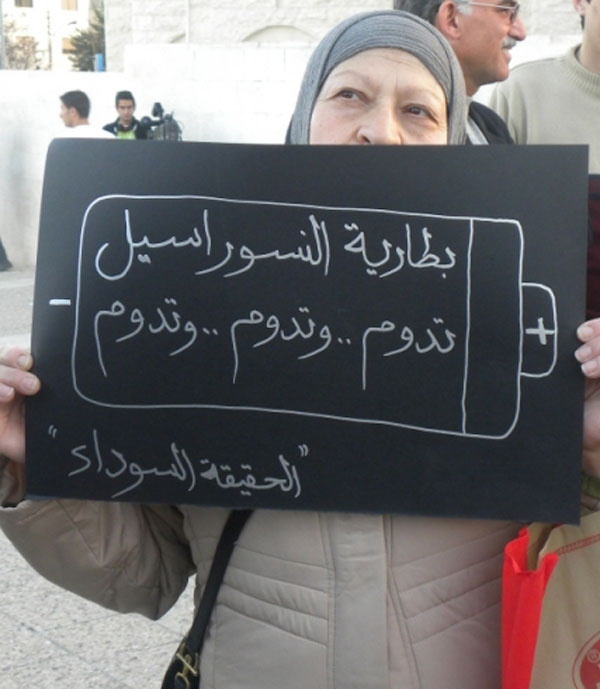 بطارية النسوراسيل
تدوم..وتدوم..وتدوم
"الحقيقة السوداء"
- +